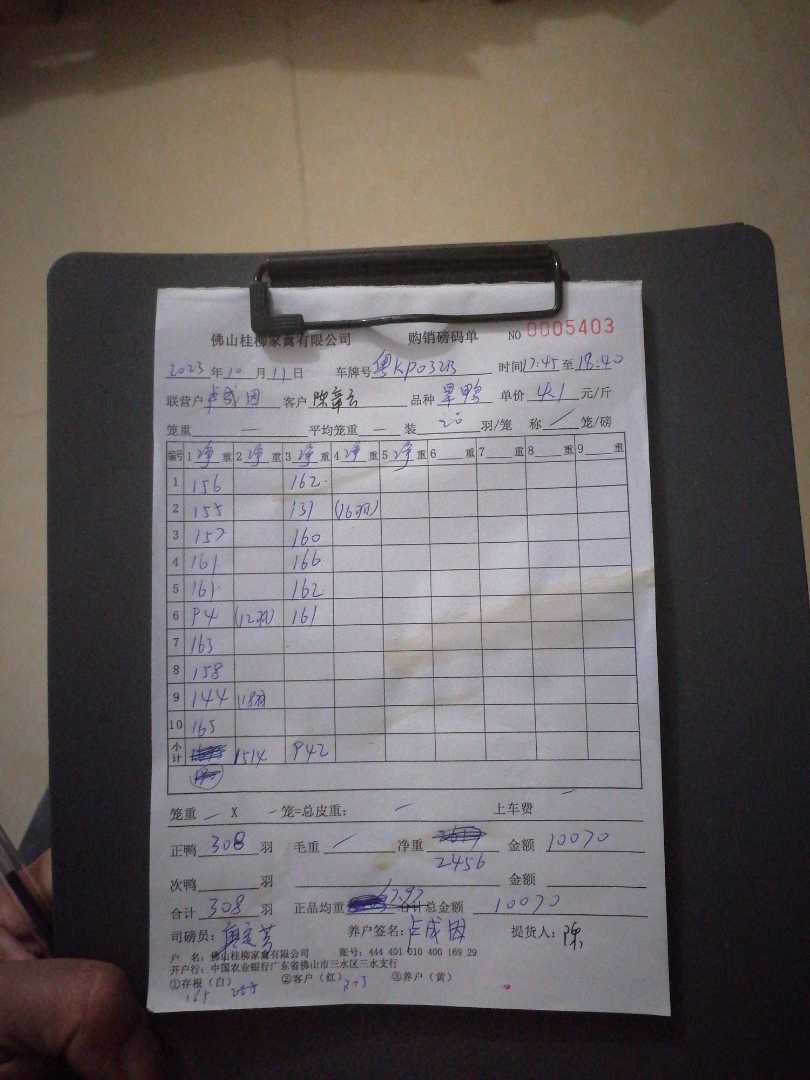 佛山桂柳家禽有限公司 购销磅码单 NO 0005403
2023年10月11日 车牌号粤KP032B 时间17:45至18.40
联营户卢成因 客户陈章云 品种 鸭 单价4.1元/斤
笼重 — 平均笼重 — 装 20 羽/笼 称 / 笼/磅
编号 1净重 2净重 3净重 4净重 5净重 6 重 7 重 8 重 9 重
1 156 162
2 155 131 (16羽)
3 157 160
4 161 166
5 161 162
6 94 (12羽) 161
7 163
8 158
9 144 (18羽
10 165
小计 1514 942
笼重 — X — 笼=总皮重: — 上车费 —
正鸭 308 羽 毛重 / 净重 2456 金额 10070
次鸭 羽 金额
合计 308 羽 正品均重 7.97 合计总金额 10070
司磅员: 养户签名:卢成因 提货人:陈
户 名:佛山桂柳家禽有限公司 账号:444 401 010 400 169 29
开户行:中国农业银行广东省佛山市三水区三水支行
①存根(白) ②客户(红) ③养户(黄)